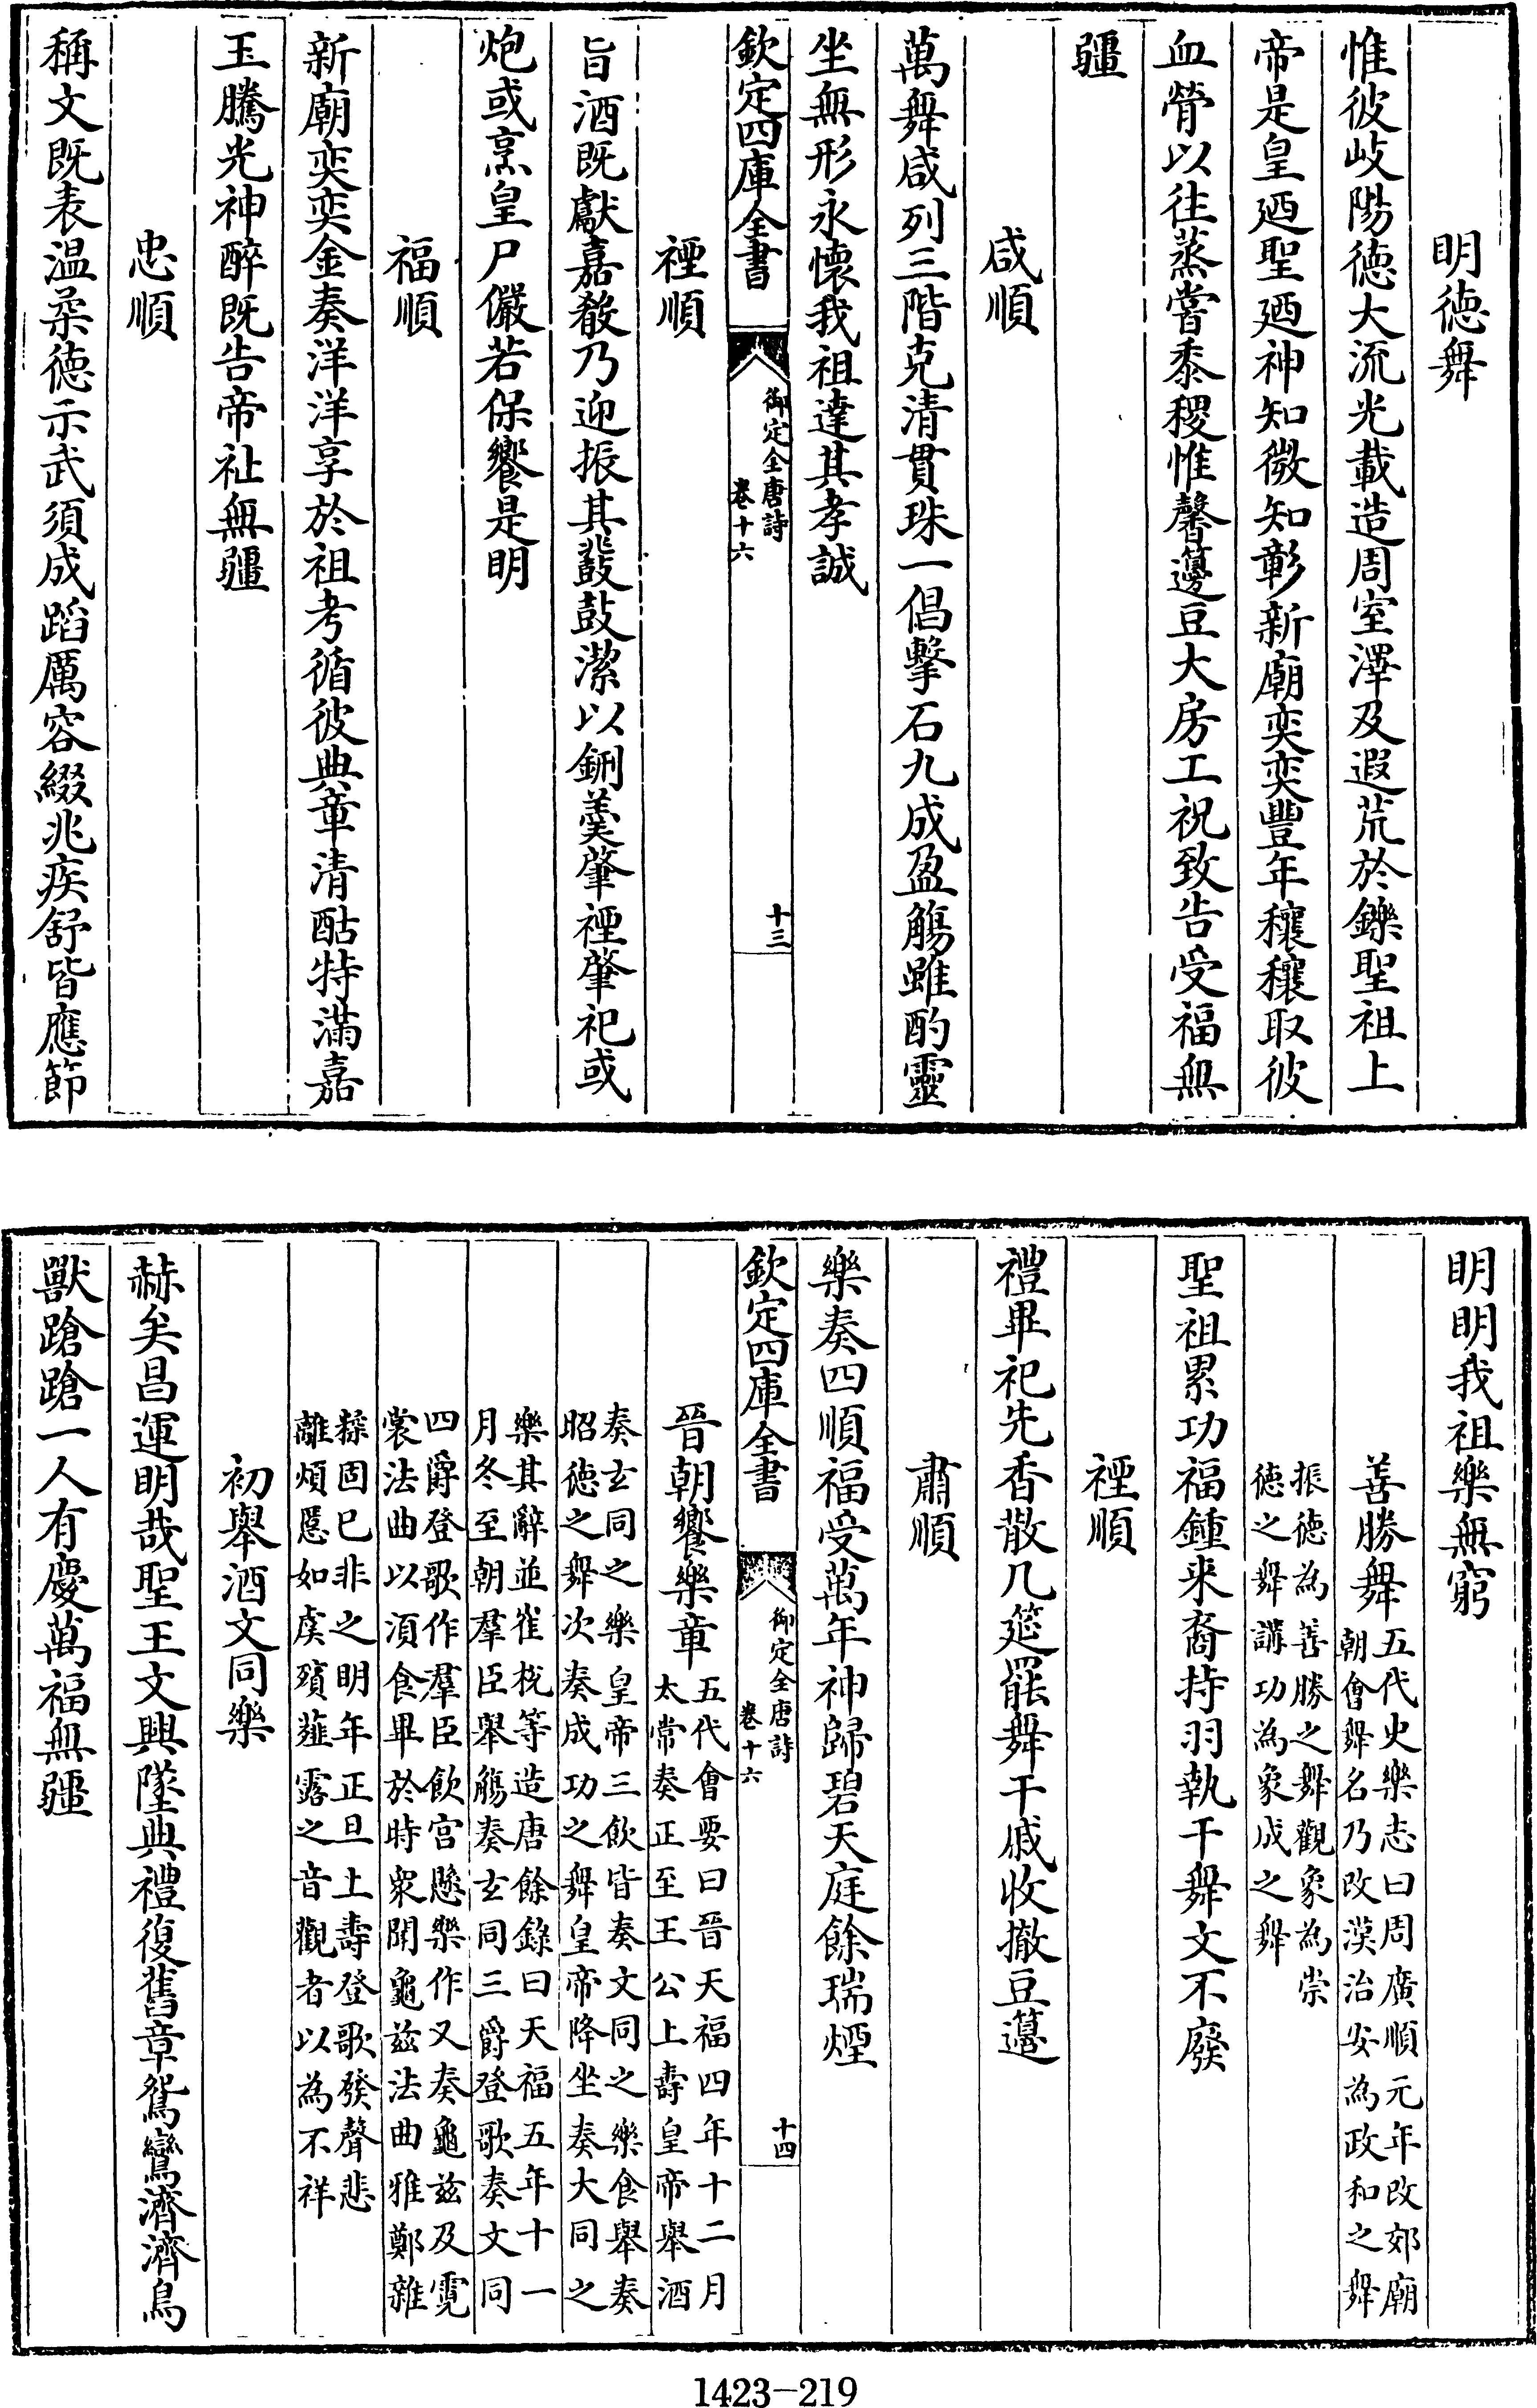 明徳舞
惟彼岐陽徳大流光載造周室澤及遐荒於鑠聖祖上
帝是皇廼聖廼神知微知彰新廟奕奕豐年穰穰取彼
血膋以往蒸嘗黍稷惟馨籩豆大房工祝致告受福無
疆
咸順
萬舞咸列三階克清貫珠一倡擊石九成盈觴雖酌靈
坐無形永懐我祖達其孝誠
欽定四庫全書
御定全唐詩
卷十六
十三
禋順
旨酒既獻嘉殽乃迎振其鼖鼓潔以鉶羮肇禋肇祀或
炮或烹皇尸儼若保饗是明
福順
新廟奕奕金奏洋洋享於祖考循彼典章清酤特滿嘉
玉騰光神醉既告帝祉無疆
忠順
稱文既表温柔徳示武須成蹈厲容綴兆疾舒皆應節
明明我祖樂無窮
善勝舞
五代史樂志曰周廣順元年改郊廟
朝會舞名乃改漢治安為政和之舞
振徳為善勝之舞觀象為崇
徳之舞講功為象成之舞
聖祖累功福鍾来裔持羽執干舞文不廢
禋順
禮畢祀先香散几筵罷舞干戚收撤豆籩
肅順
樂奏四順福受萬年神歸碧天庭餘瑞煙
欽定四庫全書
御定全唐詩
卷十六
十四
晉朝饗樂章
五代會要曰晉天福四年十二月
太常奏正至王公上壽皇帝舉酒
奏玄同之樂皇帝三飲皆奏文同之樂食舉奏
昭徳之舞次奏成功之舞皇帝降坐奏大同之
樂其辭並崔梲等造唐餘錄曰天福五年十一
月冬至朝羣臣舉觴奏玄同三爵登歌奏文同
四爵登歌作羣臣飲宫懸樂作又奏龜兹及霓
裳法曲以湏食畢於時衆聞龜兹法曲雅鄭雜
糅固已非之明年正旦上壽登歌發聲悲
離煩慝如虞殯薤露之音觀者以為不祥
初舉酒文同樂
赫矣昌運明哉聖王文興墜典禮復舊章鴛鸞濟濟鳥
獸蹌蹌一人有慶萬福無疆
1423-219